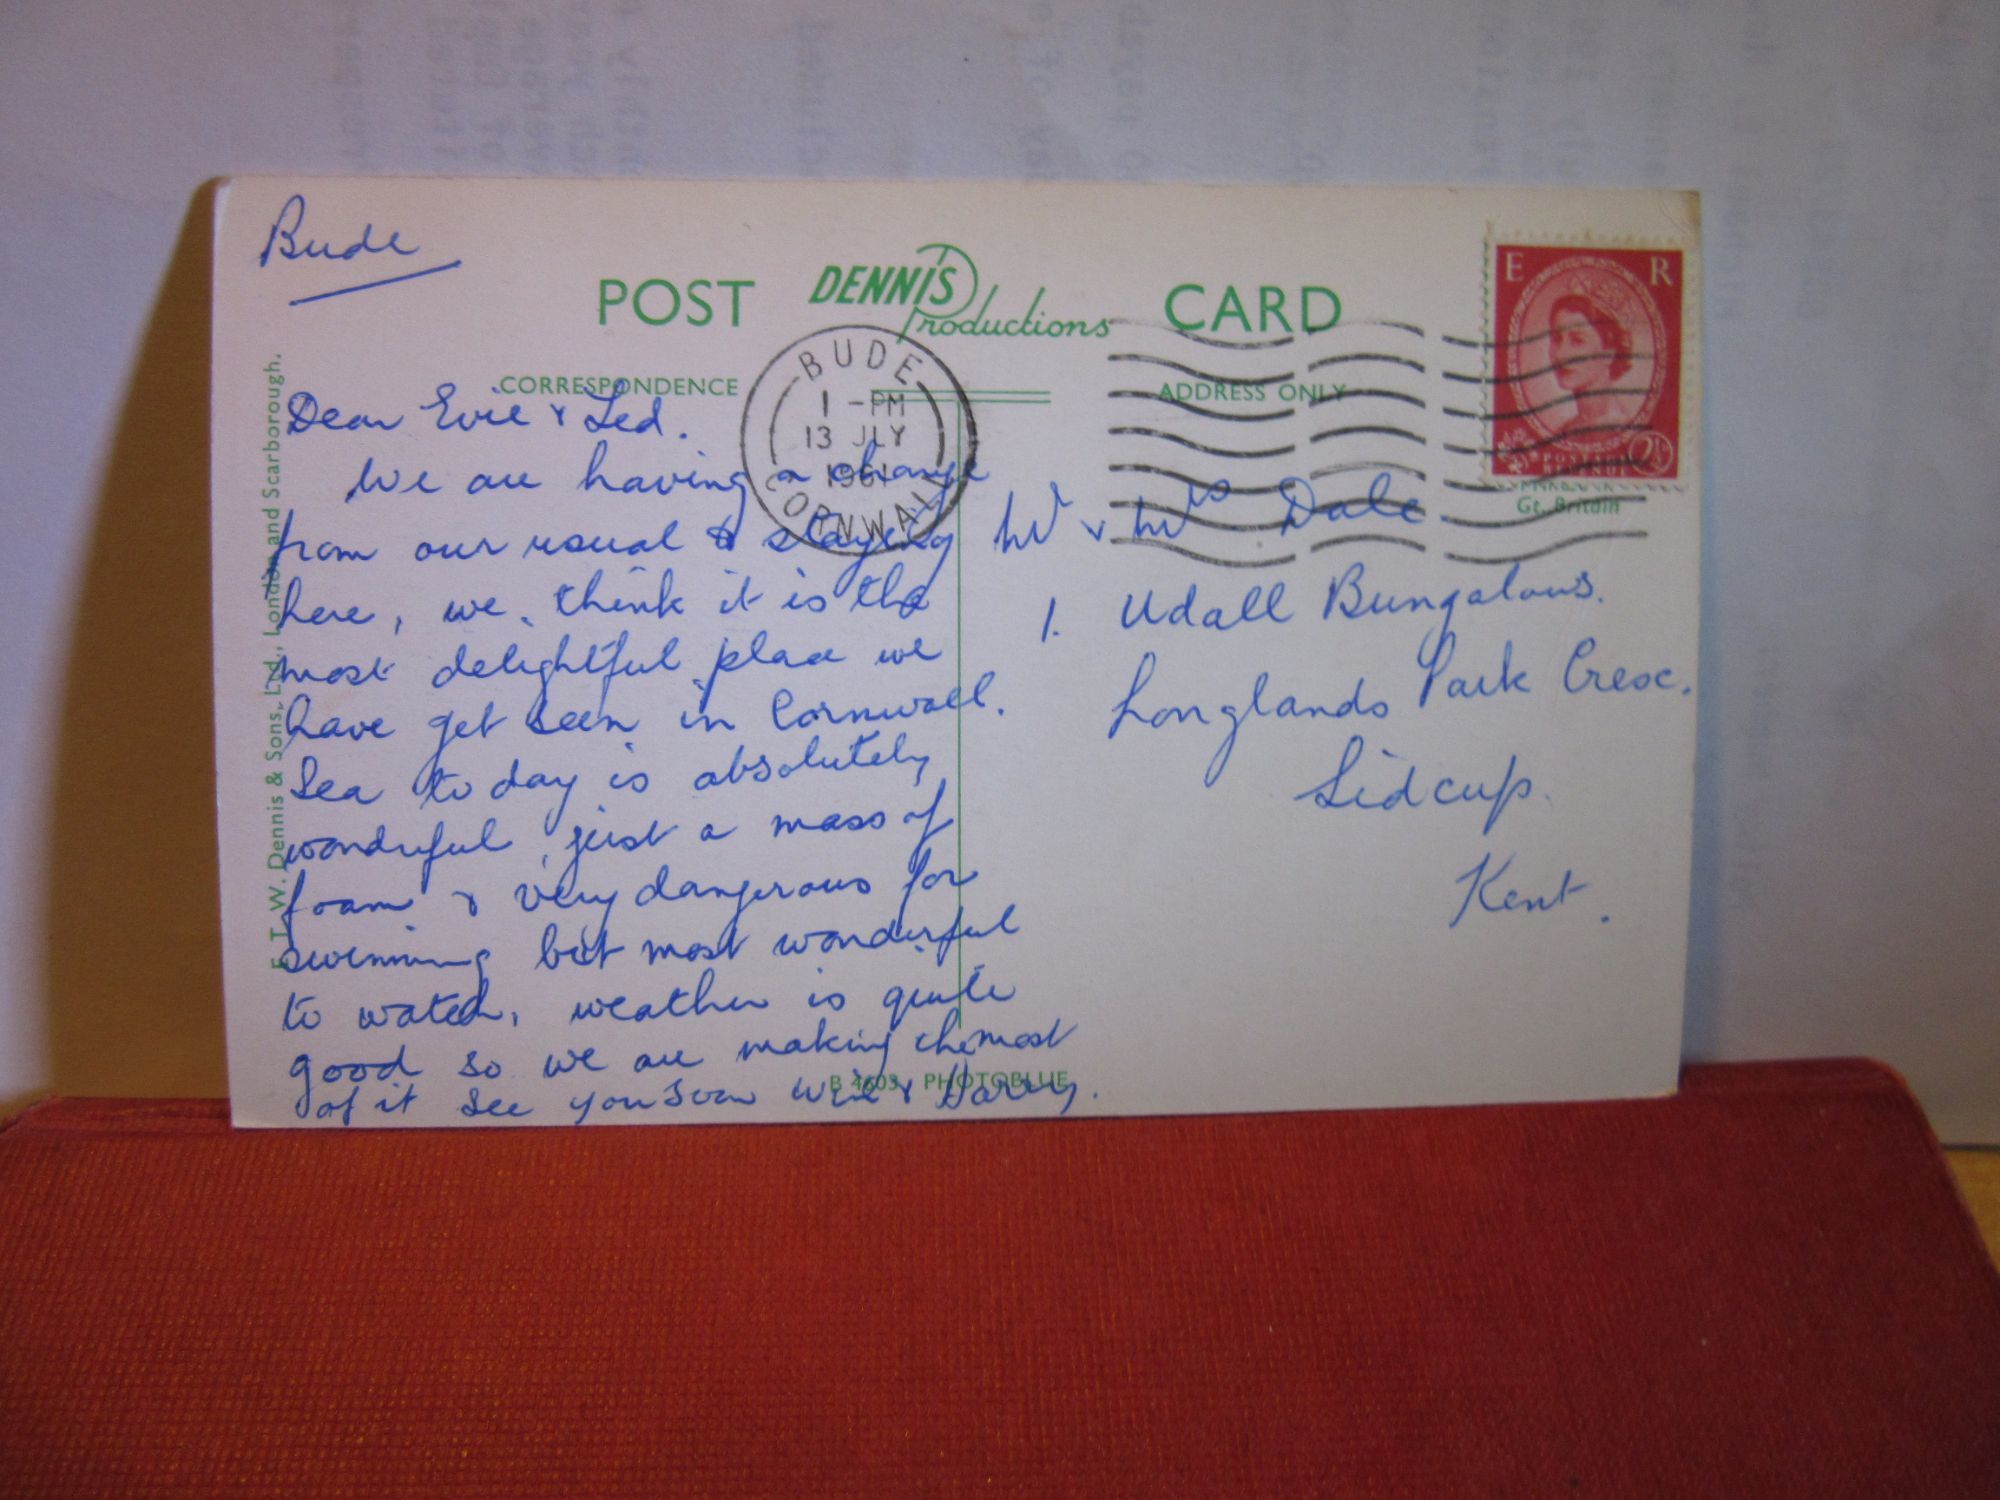 Bude
POST DENNIS Productions CARD
CORRESPONDENCE
ADDRESS ONLY
BUDE
1 - PM
13 JLY
1961
CORNWALL
E R
POSTAGE
2½
Gt. Britain
E.T.W. Dennis & Sons, Ltd., London and Scarborough.
Dear Evie & Ted.
We are having a change
from our usual & staying
here, we think it is the
most delightful place we
have yet seen in Cornwall.
Sea to day is absolutely
wonderful, just a mass of
foam & very dangerous for
swimming but most wonderful
to watch, weather is quite
good so we are making the most
of it see you soon & Harry.
Mr & Mrs Dale
1. Udall Bungalows.
Longlands Park Cresc.
Sidcup.
Kent.
B 4603 PHOTOBLUE